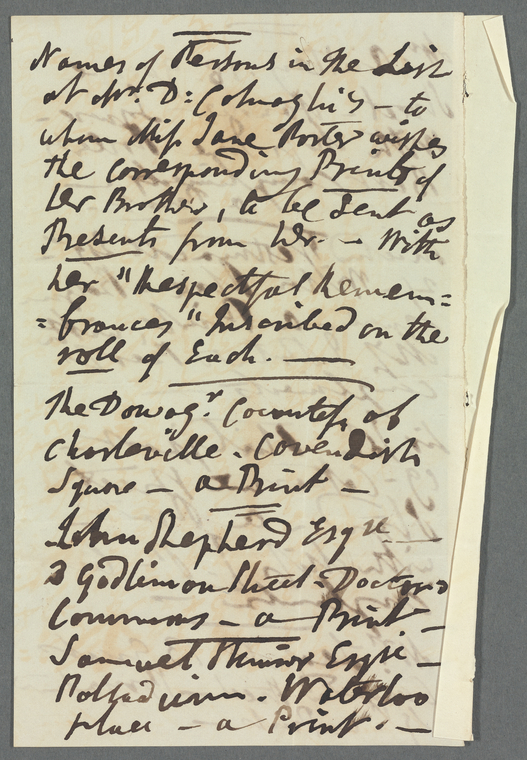 Names of Persons in the List
at Mr. D: Colnaghi's – to
whom Miss Jane Porter wishes
the corresponding Prints of
her Brother, to be sent as
Presents from her. – With
her "Respectful Remem=
=brances" Inscribed on the
roll of Each. —
The Dowagr. Countess of
Charleville. Cavendish
Square – a Print –
John Shepherd Esqre —
3 Godliman Street – Doctors
Commons – a Print –
Samuel Esqre –
Palladium. Waterloo
place – a Print. –